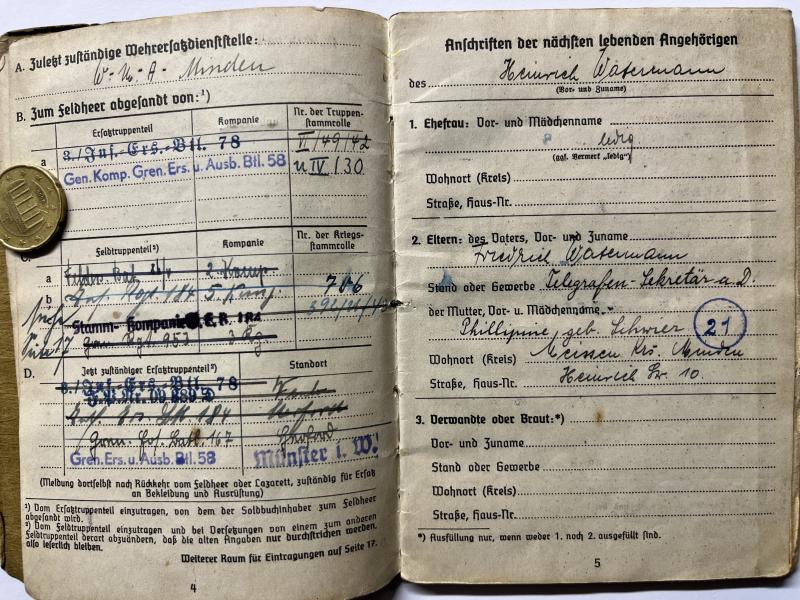 A. Zuletzt zuständige Wehrersatzdienststelle:
W-M-A- Minden
B. Zum Feldheer abgesandt von:¹)
Ersatztruppenteil
Kompanie
Nr. der Truppen-
stammrolle
a 2./Inf.-Ers.-Btl. 78
II/49/42
Gen. Komp. Gren. Ers. u. Ausb. Btl. 58
u IV/30
C.
Feldtruppenteil²)
Kompanie
Nr. der Kriegs-
stammrolle
a
b Inf. Rgt. 184 5. Komp. 786
siehe
Stamm-Kompanie
Seite 17 Gren. Rgt. 953
D.
Jetzt zuständiger Ersatztruppenteil²)
Standort
2./Inf.-Ers.-Btl. 78
184 Herford
Gren. 167 Herford
Gren. Ers. u. Ausb. Btl. 58 Münster i. W.
(Meldung dortselbst nach Rückkehr vom Feldheer oder Lazarett, zuständig für Ersatz
an Bekleidung und Ausrüstung)
¹) Vom Ersatztruppenteil einzutragen, von dem der Soldbuchinhaber zum Feldheer
abgesandt wird.
²) Vom Feldtruppenteil einzutragen und bei Versetzungen von einem zum anderen
Feldtruppenteil derart abzuändern, daß die alten Angaben nur durchstrichen werden,
also leserlich bleiben.
Weiterer Raum für Eintragungen auf Seite 17.
4
Anschriften der nächsten lebenden Angehörigen
des Heinrich Watermann
(Vor- und Zuname)
1. Ehefrau: Vor- und Mädchenname
ledig
(ggf. Vermerk „ledig")
Wohnort (Kreis)
Straße, Haus-Nr.
2. Eltern: des Vaters, Vor- und Zuname
Friedrich Watermann
Stand oder Gewerbe Telegrafen-Sekretär a. D.
der Mutter, Vor- u. Mädchenname
Phillipine geb. Schwier
21
Wohnort (Kreis) Meissen Krs. Minden
Straße, Haus-Nr. Heinrich Str. 10.
3. Verwandte oder Braut:*)
Vor- und Zuname
Stand oder Gewerbe
Wohnort (Kreis)
Straße, Haus-Nr.
*) Ausfüllung nur, wenn weder 1. noch 2. ausgefüllt sind.
5